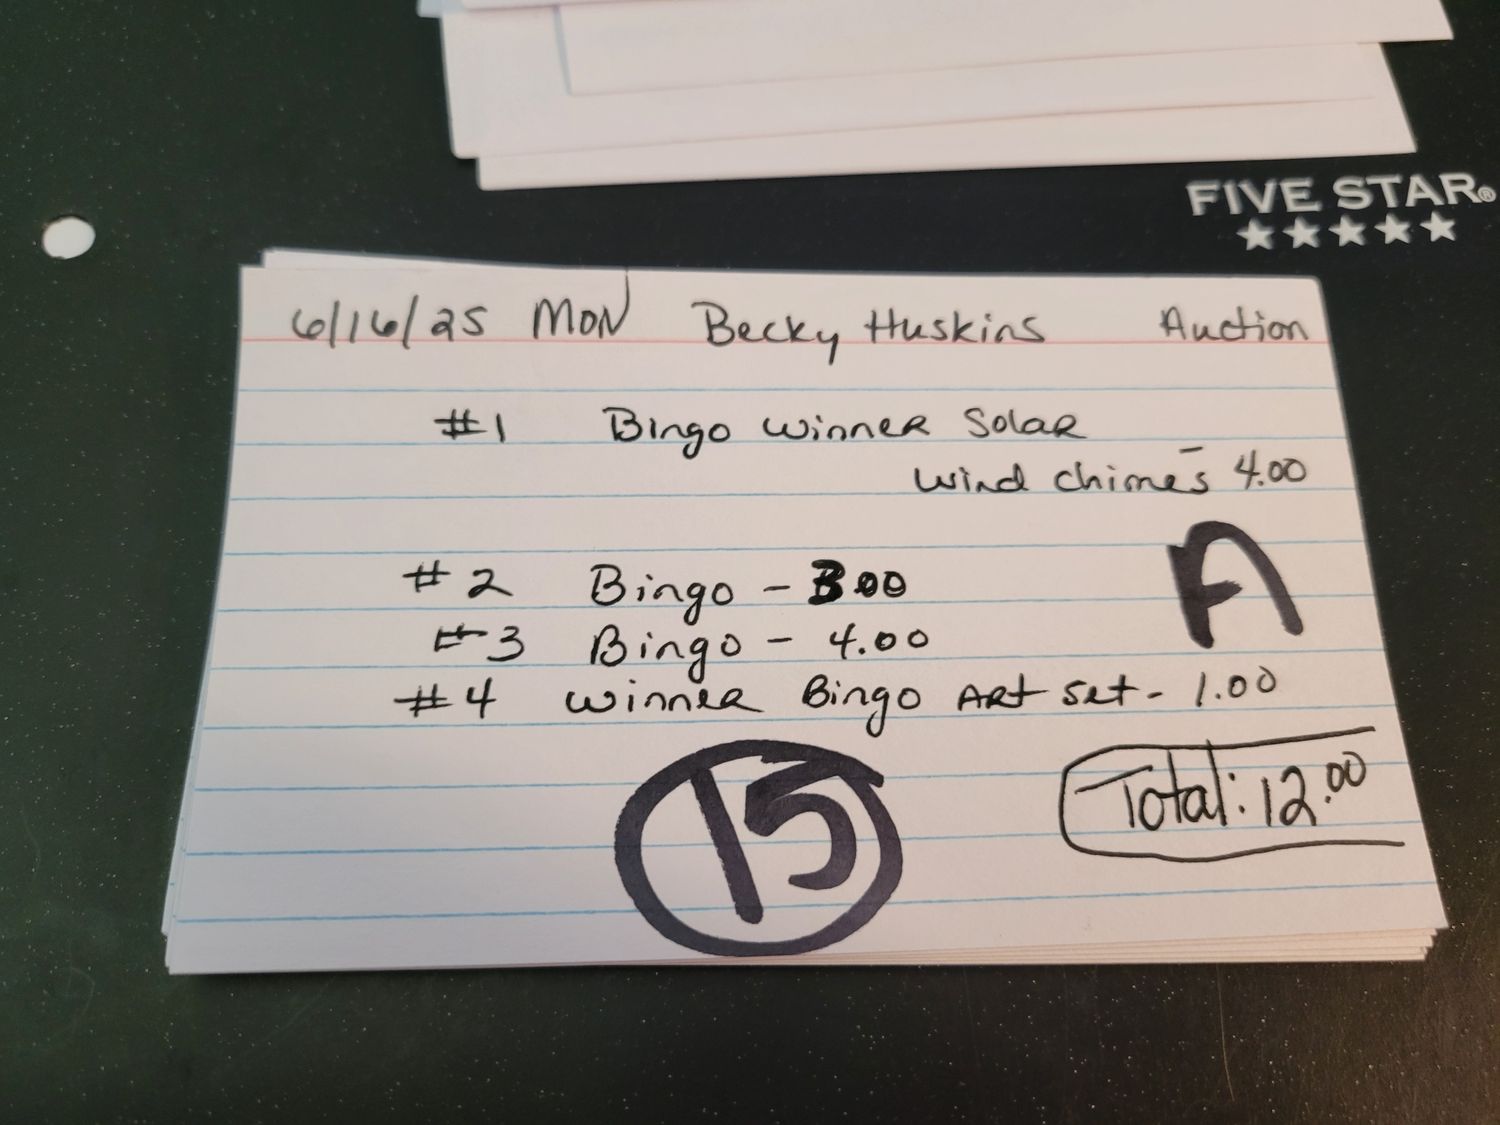 FIVE STAR®
6/16/25 MON Becky Huskins Auction
#1 Bingo winner Solar
wind chimes 4.00
A
#2 Bingo - 3.00
#3 Bingo - 4.00
#4 winner Bingo Art set - 1.00
Total: 12.00
15